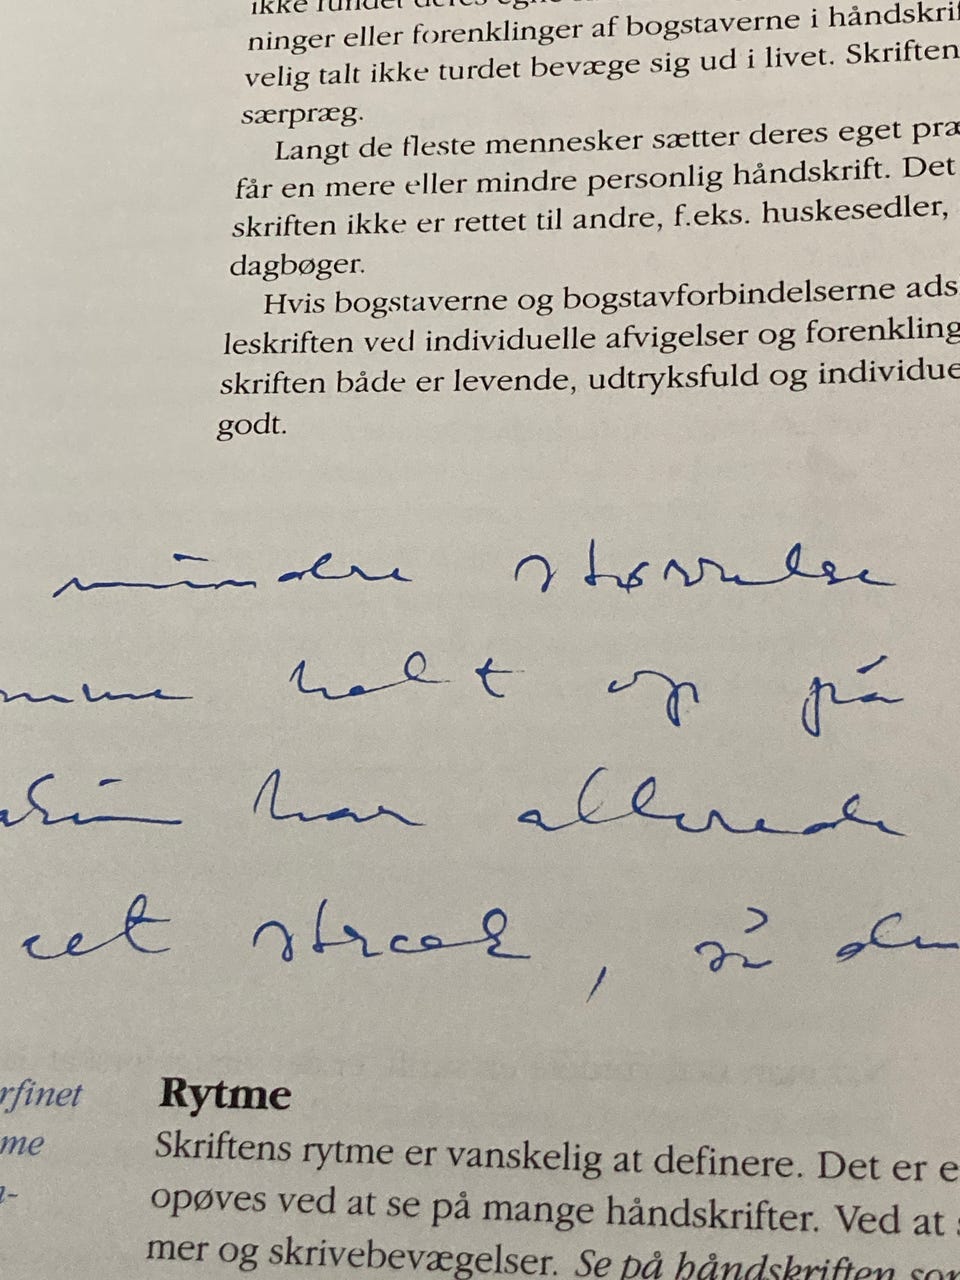 ikke fundet deres egne
ninger eller forenklinger af bogstaverne i håndskrif
velig talt ikke turdet bevæge sig ud i livet. Skriften
særpræg.
Langt de fleste mennesker sætter deres eget præ
får en mere eller mindre personlig håndskrift. Det
skriften ikke er rettet til andre, f.eks. huskesedler,
dagbøger.
Hvis bogstaverne og bogstavforbindelserne ads
leskriften ved individuelle afvigelser og forenkling
skriften både er levende, udtryksfuld og individue
godt.
mindre størrelse
mme helt op på
har allerede
æet stræk, så den
rfinet
me
l-
Rytme
Skriftens rytme er vanskelig at definere. Det er e
opøves ved at se på mange håndskrifter. Ved at s
mer og skrivebevægelser. Se på håndskriften som